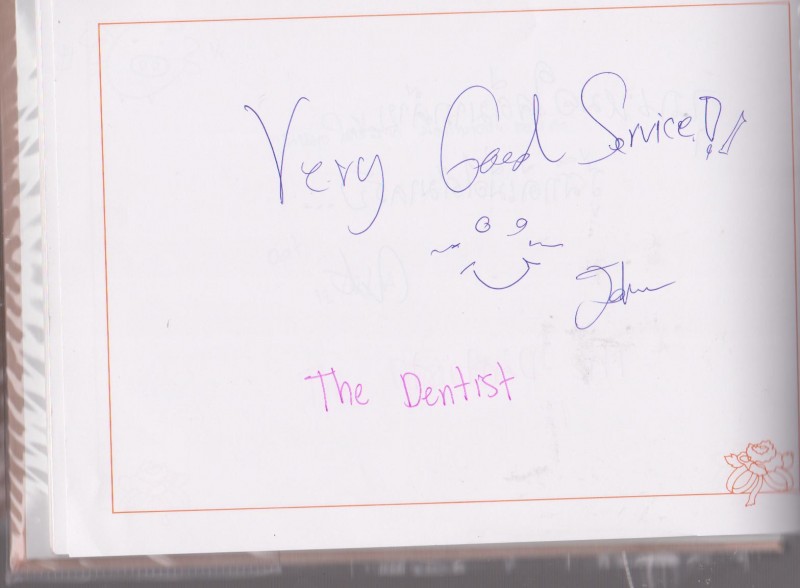 Very Good Service!!
John
The Dentist